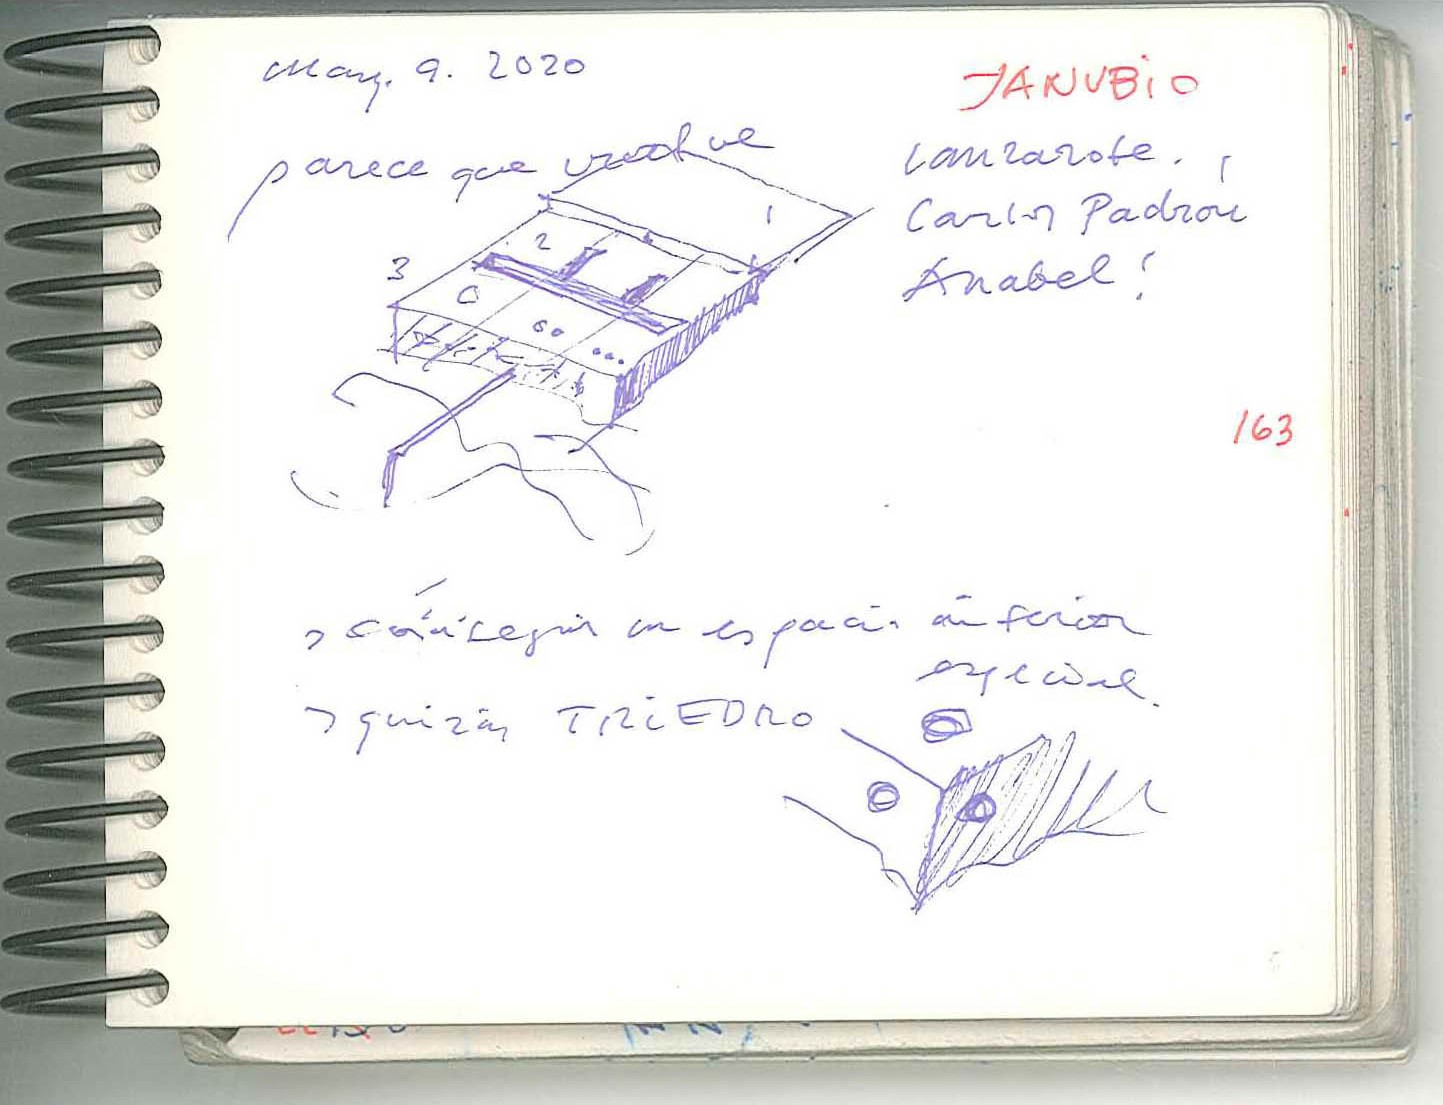 May. 9. 2020
JANUBIO
parece que vuelve
Lanzarote.
Carlos Padrón
Anabel!
1
2
3
163
> conseguir un espacio inferior
especial.
> quizás TRIEDRO